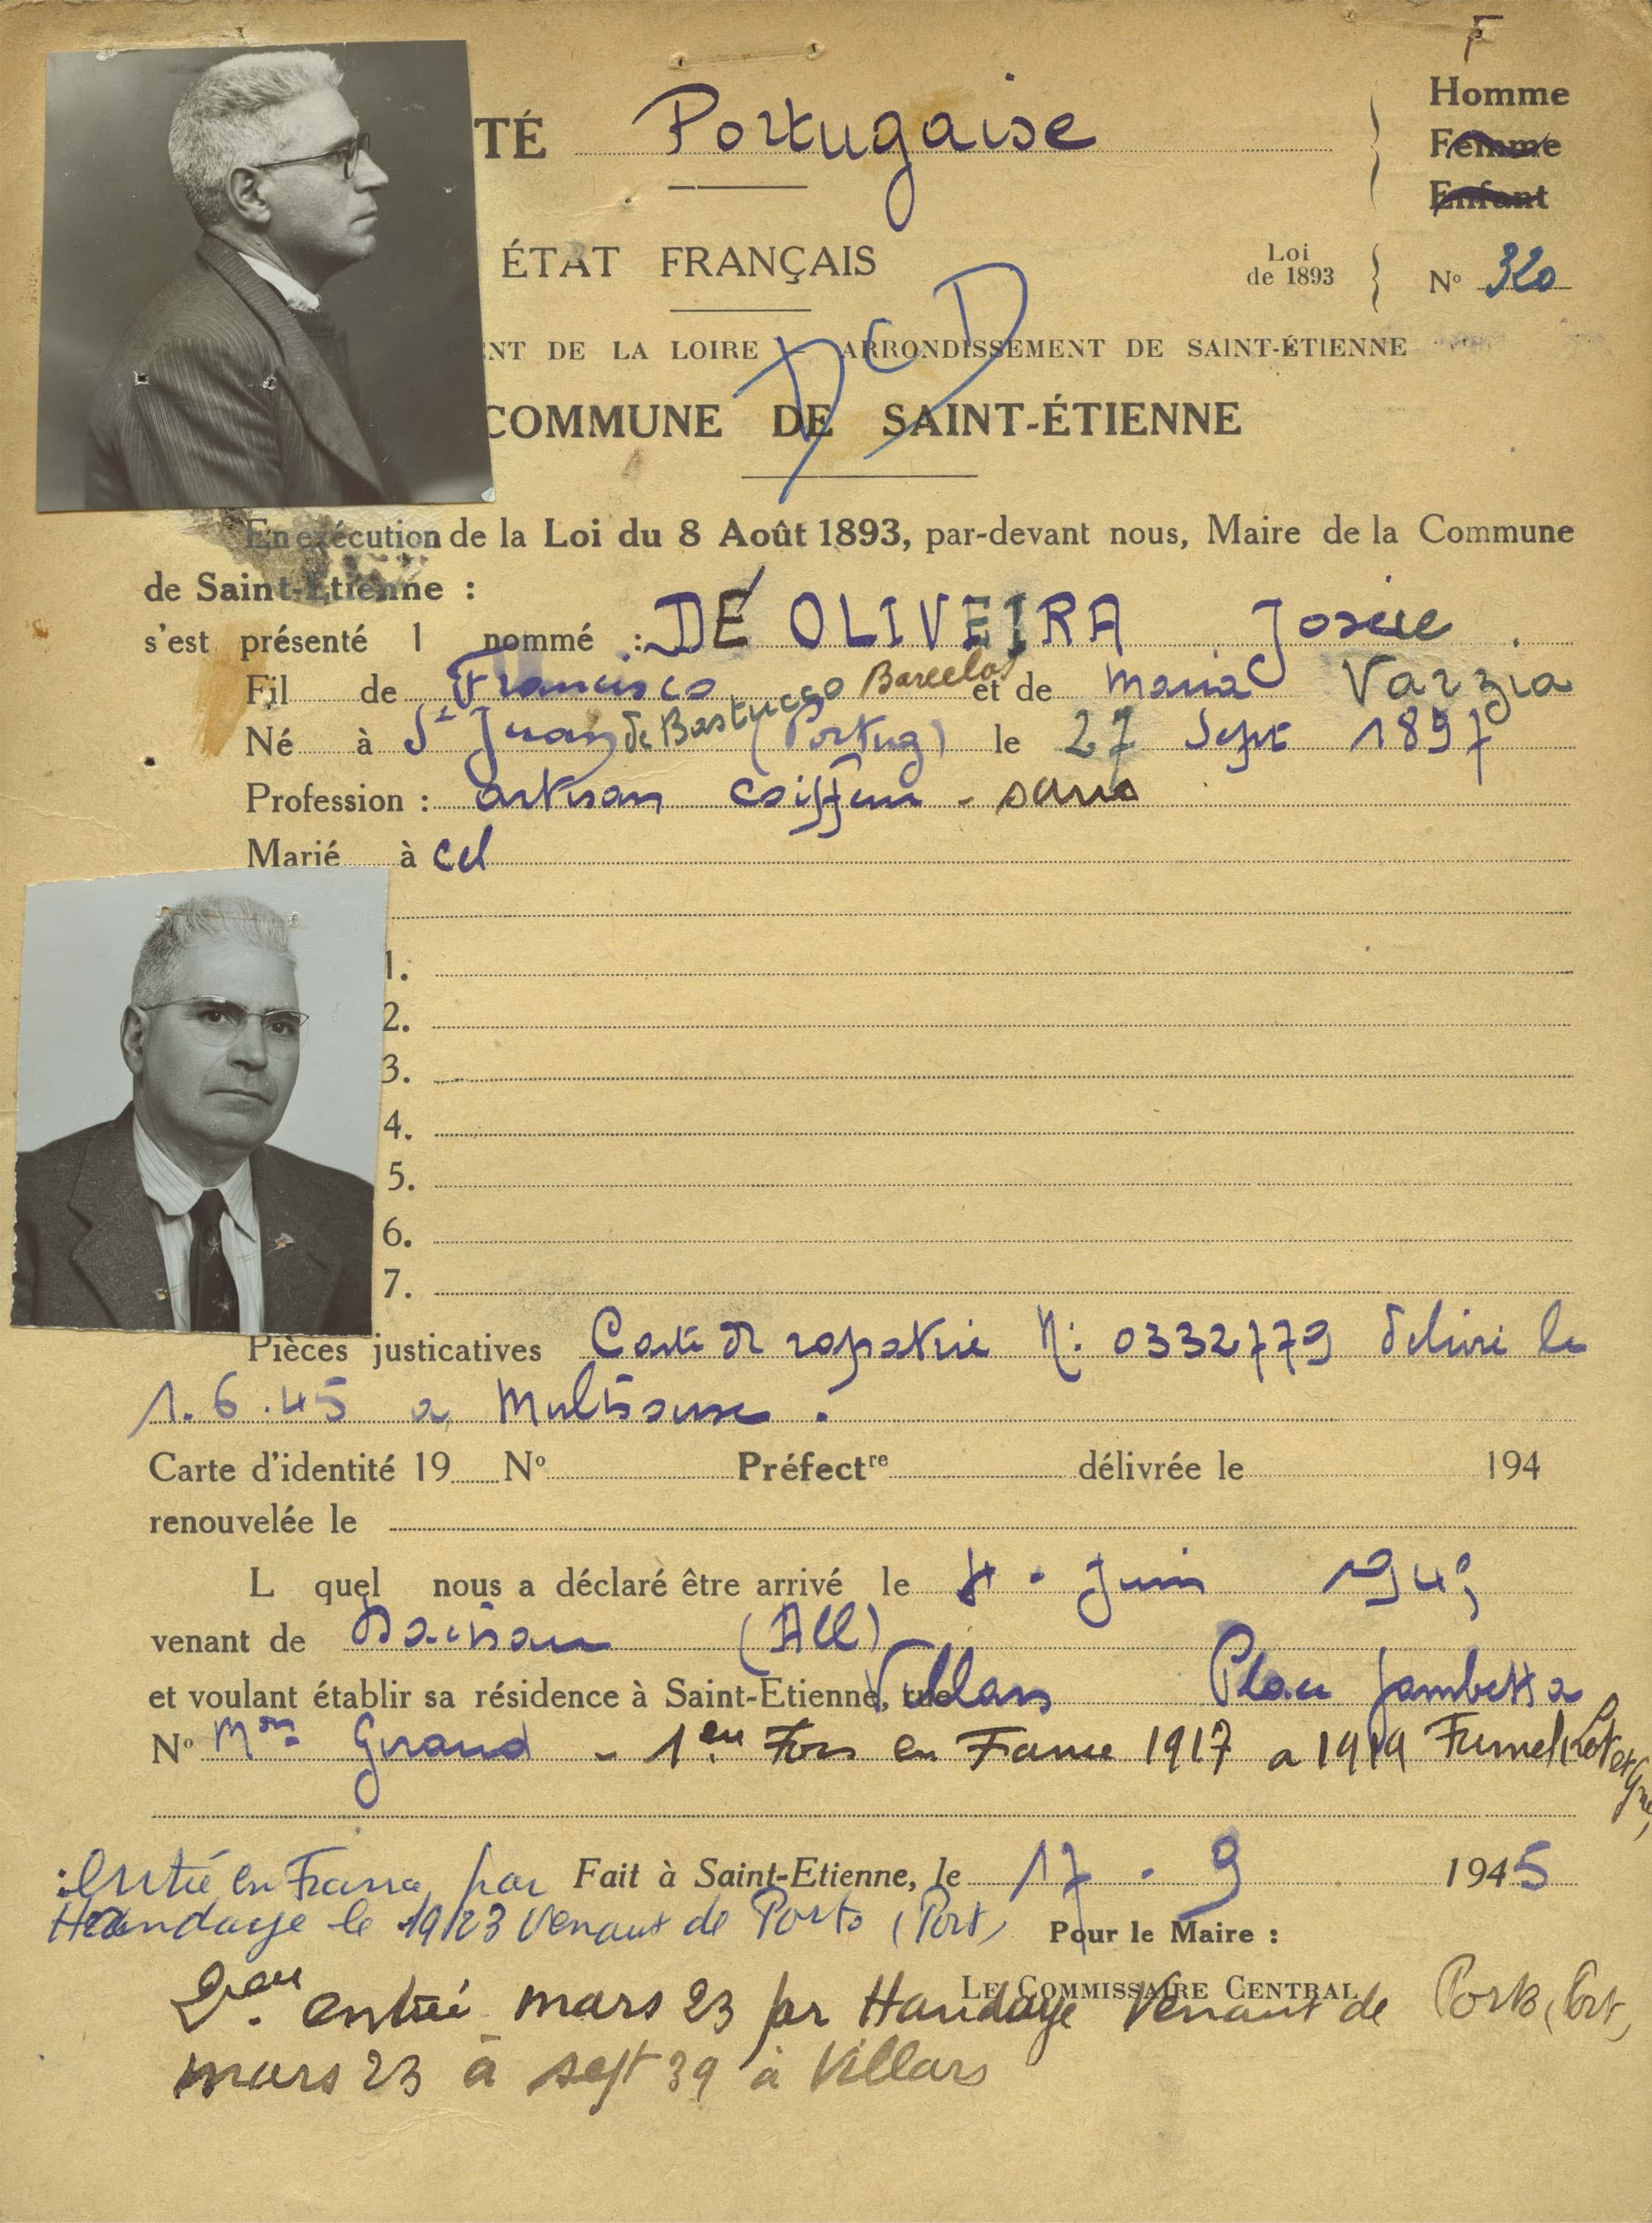 F
Homme
TÉ Portugaise
Femme
Enfant
ÉTAT FRANÇAIS
Loi
de 1893
No 320
NT DE LA LOIRE – ARRONDISSEMENT DE SAINT-ÉTIENNE
DCD
COMMUNE DE SAINT-ÉTIENNE
En exécution de la Loi du 8 Août 1893, par-devant nous, Maire de la Commune
de Saint-Etienne :
s'est présenté l nommé : DE OLIVEIRA Josué
Fil de Francisco et de Maria Varzia
Barcelos
Né à St Juan de Bastuçao (Portug) le 27 Sept 1897
Profession : artisan coiffeur - sans
Marié à cel
1.
2.
3.
4.
5.
6.
7.
Pièces justicatives Carte de rapatrié N: 0332779 délivré le
1.6.45 a Mulhouse.
Carte d'identité 19 No Préfectre délivrée le 194
renouvelée le
L quel nous a déclaré être arrivé le 4 - Juin 1945
venant de Dachau (All)
et voulant établir sa résidence à Saint-Etienne, rue Villars Place Gambetta
No Mon Giraud - 1ere Fois en France 1917 a 1919 Fumel Lot et Gne
Fait à Saint-Etienne, le 17 - 9 1945
: Entré en France par
Handaye le 1923 Venant de Porto (Port)
Pour le Maire :
LE COMMISSAIRE CENTRAL
2eme entrée mars 23 par Handaye Venant de Porto (Port)
mars 23 à sept 39 à Villars